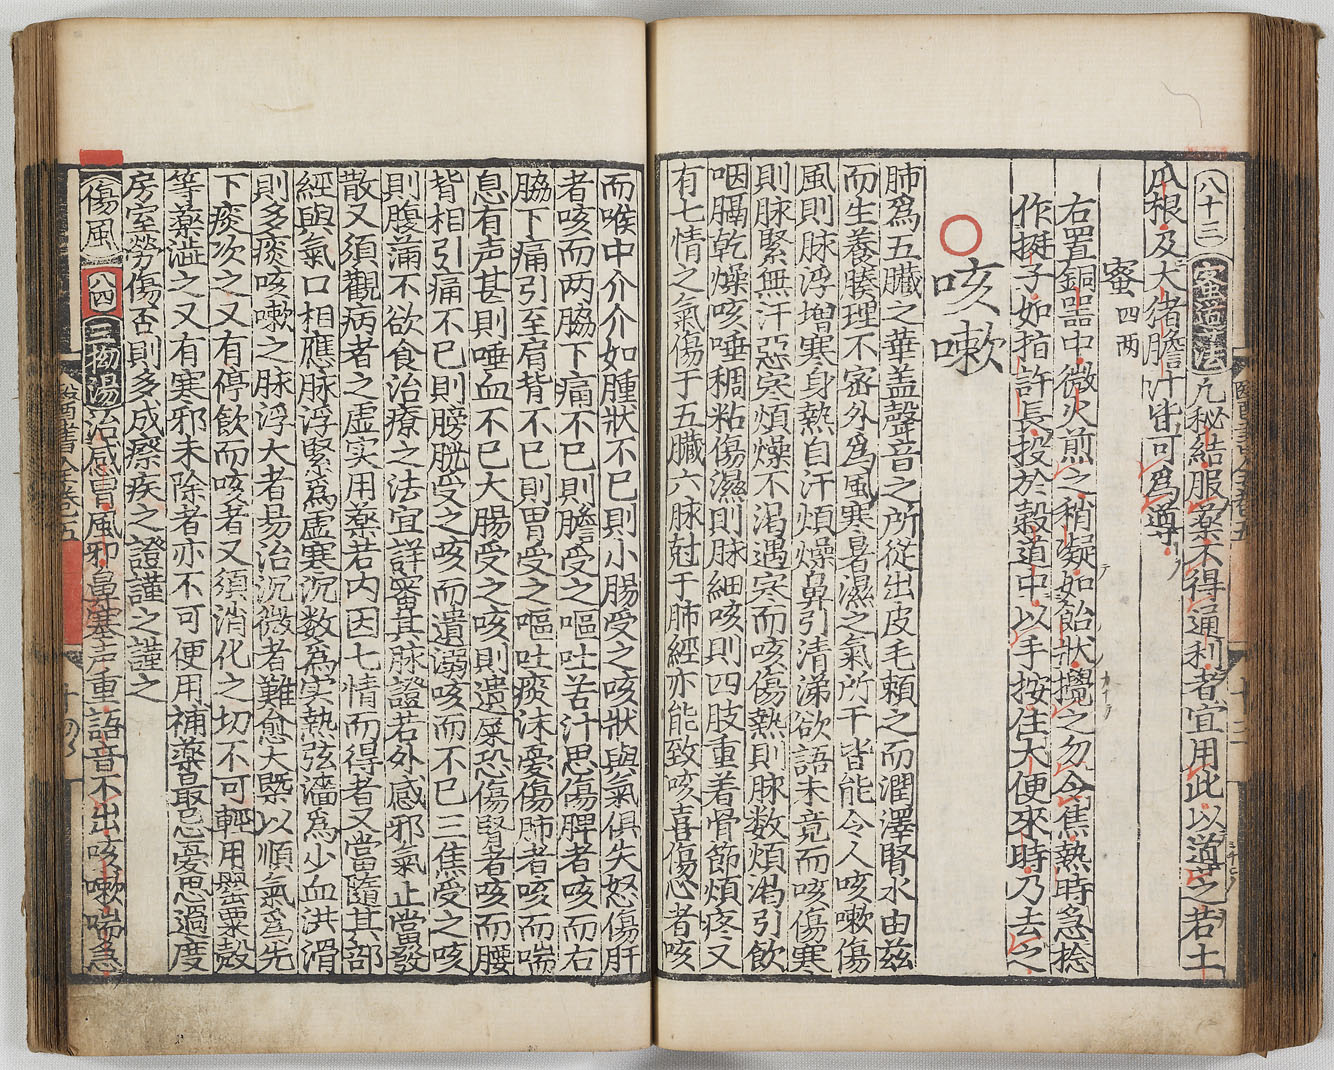 八十三 蜜導法 凡秘結服藥不得通利者宜用此以導之若土
瓜根及大猪膽汁皆可爲導
蜜四两
右置銅噐中微火煎之稍凝如飴状攪之勿令焦熱時急捻
作挺子如指許長投於糓道中以手按住大便來時乃去之
咳嗽
肺爲五臓之華盖聲音之所從出皮毛頼之而潤澤腎水由兹
而生養腠理不密外爲風寒暑濕之氣所干皆能令人咳嗽傷
風則脉浮增寒身熱自汗煩燥鼻引清涕欲語未竟而咳傷寒
則脉緊無汗惡寒煩燥不渴遇寒而咳傷熱則脉数煩渴引飲
咽膈乾燥咳唾稠粘傷濕則脉細咳則四肢重着骨節煩疼又
有七情之氣傷于五臓六脉尅于肺經亦能致咳喜傷心者咳
而喉中介介如腫狀不已則小腸受之咳狀與氣俱失怒傷肝
者咳而两脇下痛不已則膽受之嘔吐苦汁思傷脾者咳而右
脇下痛引至肩背不已則胃受之嘔吐痰沫憂傷肺者咳而喘
息有声甚則唾血不已大腸受之咳則遺屎恐傷腎者咳而腰
背相引痛不已則膀胱受之咳而遺溺咳而不已三焦受之咳
則腹滿不欲食治療之法宜詳審其脉證若外感邪氣止當發
散又須觀病者之虚实用藥若内因七情而得者又當隨其部
經與氣口相應脉浮緊爲虚寒沉数爲实熱弦濇爲少血洪滑
則多痰咳嗽之脉浮大者易治沉微者難愈大槩以順氣爲先
下痰次之又有停飲而咳者又須消化之切不可輕用罌粟殻
等藥澁之又有寒邪未除者亦不可便用補藥最忌憂思過度
房室勞傷否則多成瘵疾之證謹之謹之
傷風 八四 三拗湯 治感冒風邪鼻塞声重語音不出咳嗽喘急